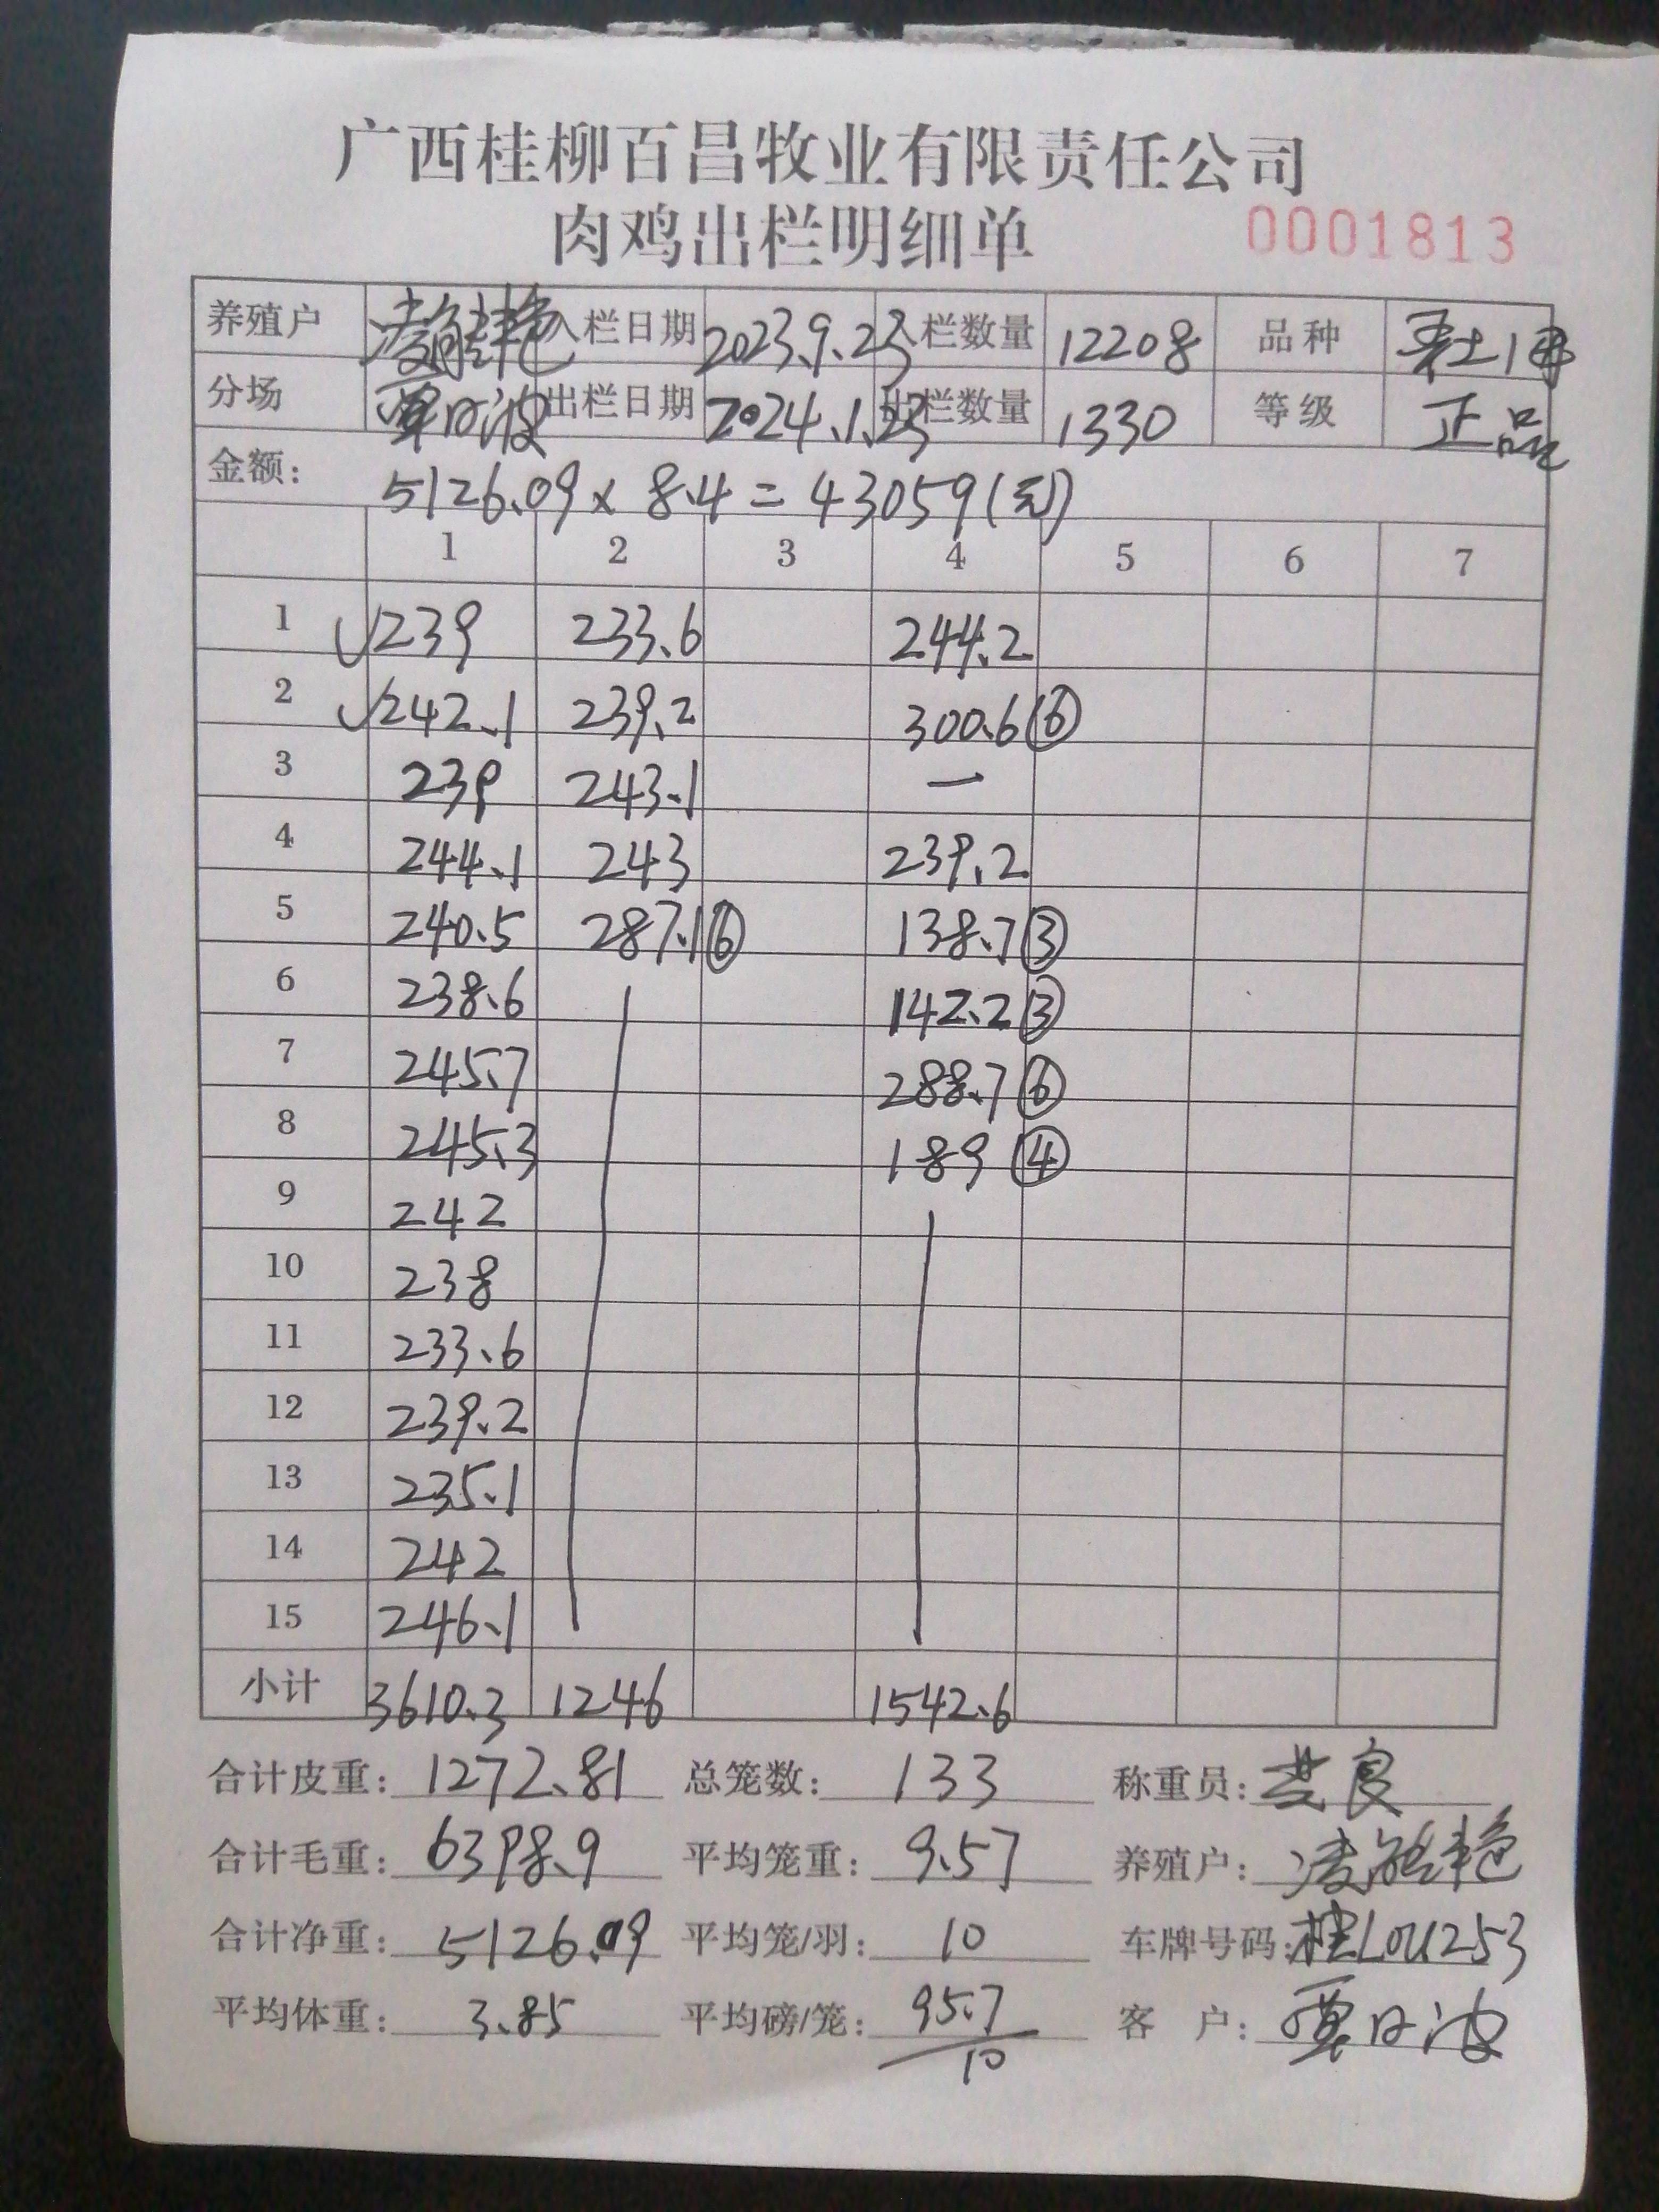 广西桂柳百昌牧业有限责任公司
肉鸡出栏明细单 0001813
养殖户 凌 艳 入栏日期 2023.9.23 入栏数量 12208 品种 土1
分场 覃日波 出栏日期 2024.1.23 出栏数量 1330 等级 正品
金额: 5126.09 x 8.4 = 43059(元)
1 2 3 4 5 6 7
1 √239 233.6 244.2
2 √242.1 239.2 300.6 ⑥
3 239 243.1 一
4 244.1 243 239.2
5 240.5 287.1 ⑥ 138.7 ③
6 238.6 142.2 ③
7 245.7 288.7 ⑥
8 245.3 189 ④
9 242
10 238
11 233.6
12 239.2
13 235.1
14 242
15 246.1
小计 3610.3 1246 1542.6
合计皮重: 1272.81 总笼数: 133 称重员: 良
合计毛重: 6398.9 平均笼重: 9.57 养殖户: 凌 艳
合计净重: 5126.09 平均笼/羽: 10 车牌号码: 桂L0U253
平均体重: 3.85 平均磅/笼: 95.7
10 客 户: 覃日波